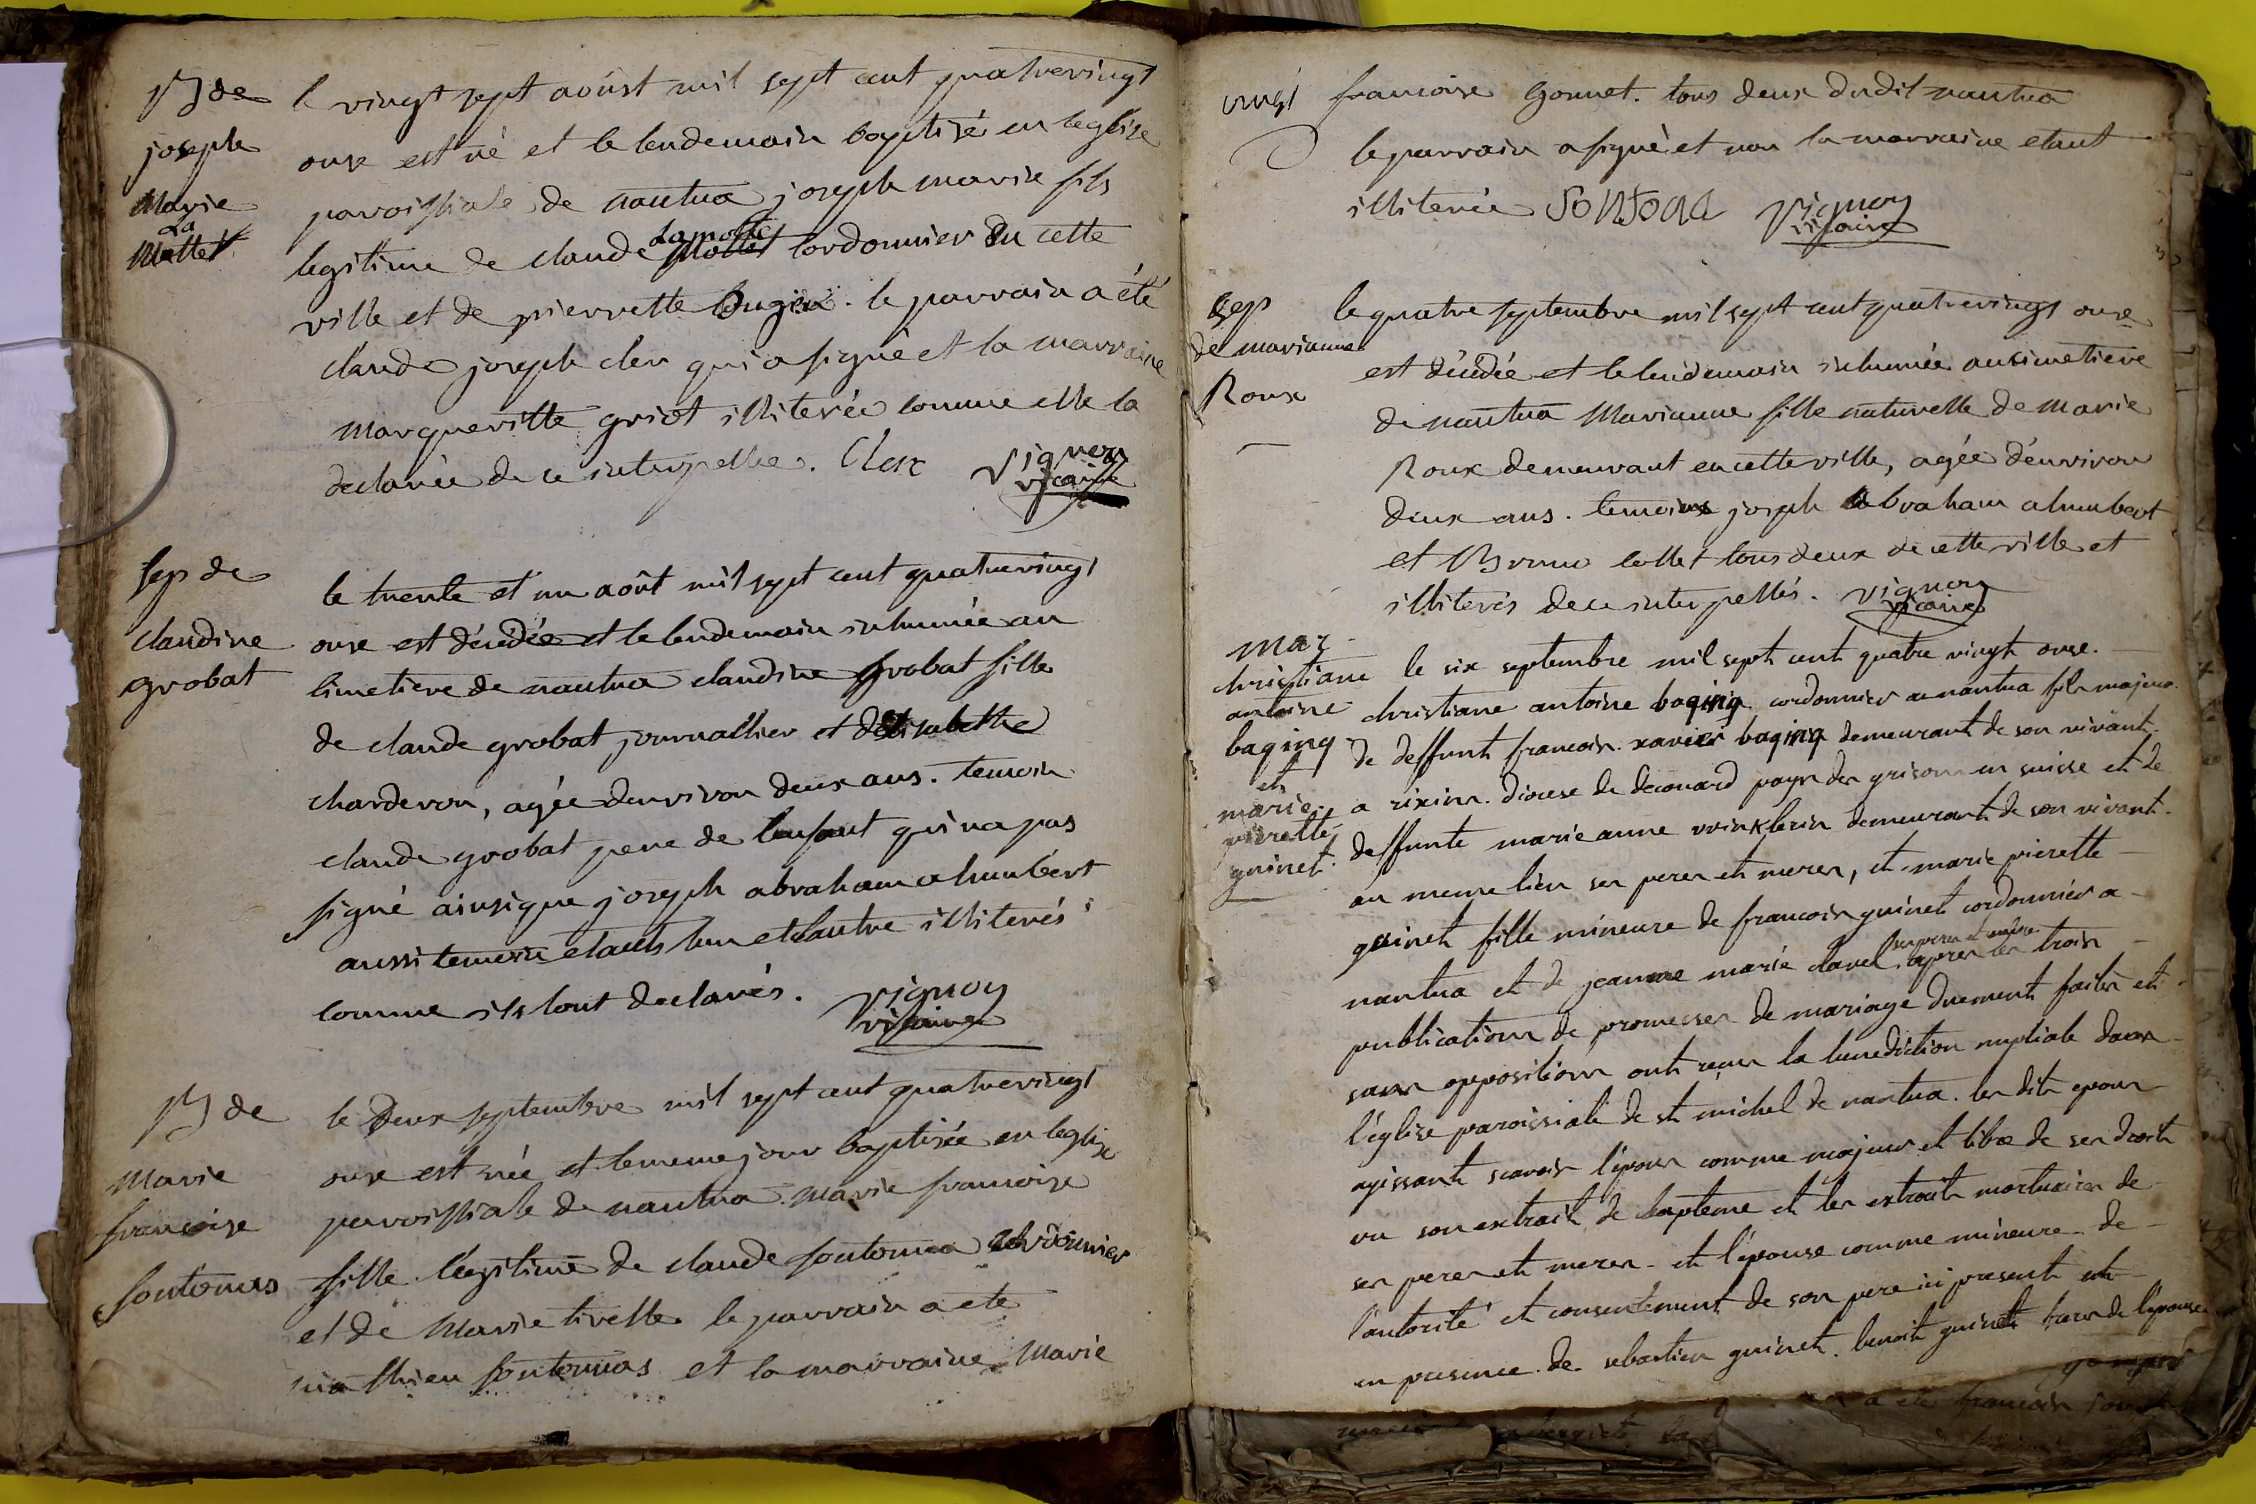 B de
joseph
Marie
La
Mottet
le vingt sept aoúst mil sept cent quatrevingt
onze est né et le lendemain baptisé en leglise
paroissiale de nantua joseph marie fils
legitime de claude Lamotte cordonnier en cette
ville et de pierrette bugier. le parrain a été
claude joseph clerc qui a signé et la marraine
margueritte griot illiterée comme elle la
declarée de ce interpellée. Clerc Vignon
vicaire
Sep de
claudine
grobat
le trente et un août mil sept cent quatrevingt
onze est décédée et le lendemain inhumée au
cimetiere de nantua claudine grobat fille
de claude grobat journallier et delisabethe
charderon, agée denviron deux ans. temoin
claude grobat pere de lenfant qui na pas
signé ainsique joseph abraham ahumbert
aussi temoin etants lun et lautre illiterés
comme ils lont declarés. Vignon
vicaire
B de
Marie
francoise
Sontonas
le deux septembre mil sept cent quatrevingt
onze est née et lememe jour baptisée en leglise
paroissiale de nantua Marie francoise
fille légitime de claude sontonas cordonnier
et de Marie tirette le parrain a ete
mathieu sontonnas et la marraine Marie
vingt francoise Gonnet. tous deux dudit nantua
le parrain a signé et non la marraine etant
illiterée Sontona Vignon
vicaire
Sep
de marianne
Roux
le quatre septembre mil sept cent quatrevingt onze
est décédée et le lendemain inhumée au cimetiere
de nantua Marianne fille naturelle de Marie
Roux demeurant en cette ville, agée d'environ
deux ans. temoins joseph abraham ahumbert
et Bruno collet tous deux de cette ville et
illiterés de ce interpellés. Vignon
vicaire
mar
christiane
antoine
baging
et
marie
pierette
guinet.
le six septembre mil sept cent quatre vingt onze.
christiane antoine baging cordonnier a nantua fils majeur
de deffunt francois xavier baging demeurant de son vivant
a rixinn diocese de decouard pays des grisons en suisse et de
deffunte marie anne vvinklerin demeurant de son vivant
au meme lieu ses peres et meres, et marie pierette
guinet fille mineure de francois guinet cordonnier a
nantua et de jeanne marie clavel ses pere et mere apres les trois
publications de promesses de mariage duement faites et
sans oppositions ont reçus la benediction nuptiale dans
l'église paroissiale de st michel de nantua. les dits epoux
agissant scavoir l'epoux comme majeur et libre de ses droits
vu son extrait de bapteme et les extraits mortuaires de
ses peres et meres et l'épouse comme mineure de
l'autorité et consentement de son pere ici present et
en presence de sebastien guinet. benoit guinet freres de l'épouse